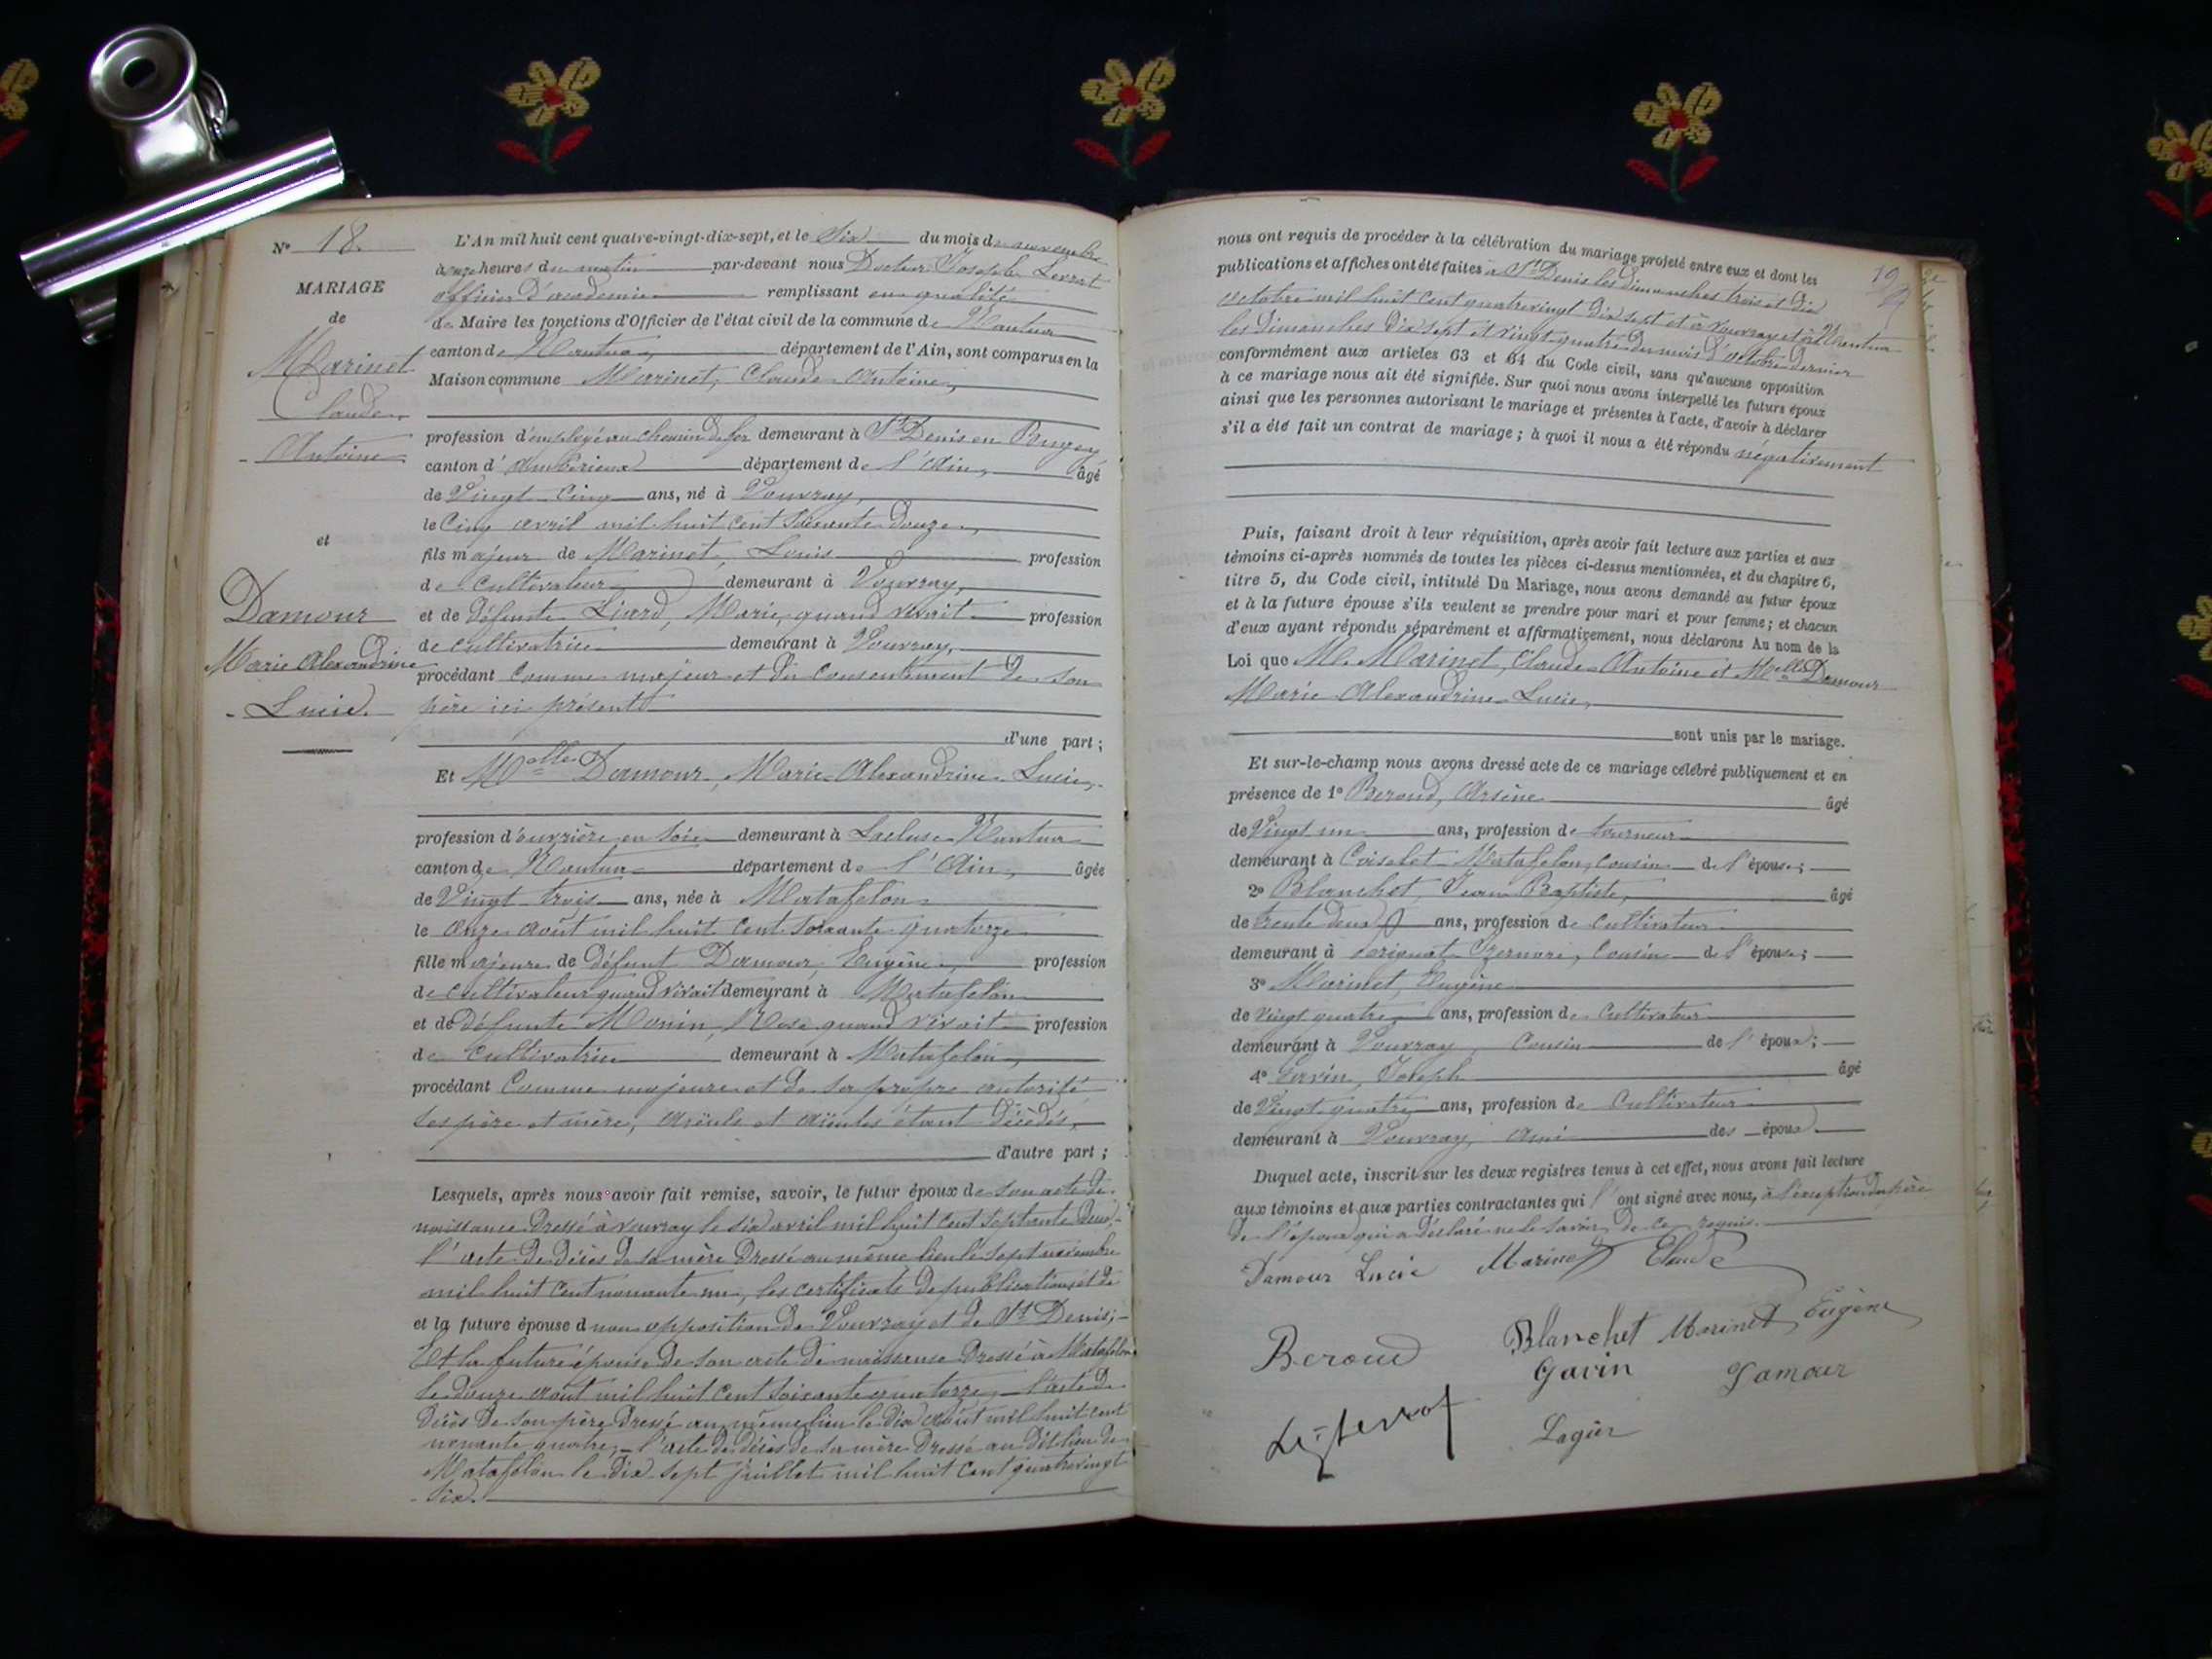 N° 18.
MARIAGE
de
Marinet
Claude
Antoine
et
Damour
Marie Alexandrine
Lucie.
L'An mil huit cent quatre-vingt-dix-sept, et le Six du mois de novembre
à onze heures du matin par-devant nous Docteur Joseph Levrat
officier d'académie remplissant en qualité
de Maire les fonctions d'Officier de l'état civil de la commune de Nantua
canton de Nantua, département de l'Ain, sont comparus en la
Maison commune Marinet, Claude Antoine,
profession d'employé au chemin de fer demeurant à St Denis en Bugey
canton d'Ambérieux département de l'Ain, âgé
de Vingt cinq ans, né à Vouvray,
le Cinq avril mil huit cent soixante douze,
fils majeur de Marinet, Louis profession
de cultivateur demeurant à Vouvray,
et de défunte Liard, Marie, quand vivait profession
de cultivatrice demeurant à Vouvray,
procédant comme majeur et du consentement de son
père ici présent
d'une part ;
Et Melle Damour, Marie Alexandrine Lucie,
profession d'ouvrière en soie demeurant à Lacluse Nantua
canton de Nantua département de l'Ain, âgée
de Vingt trois ans, née à Matafelon
le onze août mil huit cent soixante quatorze
fille majeure de défunt Damour, Eugène, profession
de cultivateur quand vivait demeurant à Matafelon
et de défunte Monin, Rose quand vivait profession
de cultivatrice demeurant à Matafelon,
procédant comme majeure et de sa propre autorité
ses père et mère, aïeuls et aïeules étant décédés,
d'autre part ;
Lesquels, après nous avoir fait remise, savoir, le futur époux de son acte de
naissance dressé à Vouvray le six avril mil huit cent septante deux,-
l'acte de décès de sa mère dressé au même lieu le sept novembre
mil huit cent nonante un, les certificats de publication et de
et la future épouse d non opposition de Vouvray et de St Denis;-
Et la future épouse de son acte de naissance dressé à Matafelon
le douze août mil huit cent soixante quatorze, - l'acte de
décès de son père dressé au même lieu le dix août mil huit cent
nonante quatre, - l'acte de décès de sa mère dressé au dit lieu de
Matafelon le dix sept juillet mil huit cent quatrevingt
six.
19
nous ont requis de procéder à la célébration du mariage projeté entre eux et dont les
publications et affiches ont été faites à St Denis les dimanches trois et dix
octobre mil huit cent quatrevingt dix sept et à Vouvray et à Nantua
les dimanches dix sept et vingt quatre du mois d'octobre dernier
conformément aux articles 63 et 64 du Code civil, sans qu'aucune opposition
à ce mariage nous ait été signifiée. Sur quoi nous avons interpellé les futurs époux
ainsi que les personnes autorisant le mariage et présentes à l'acte, d'avoir à déclarer
s'il a été fait un contrat de mariage ; à quoi il nous a été répondu négativement
Puis, faisant droit à leur réquisition, après avoir fait lecture aux parties et aux
témoins ci-après nommés de toutes les pièces ci-dessus mentionnées, et du chapitre 6,
titre 5, du Code civil, intitulé Du Mariage, nous avons demandé au futur époux
et à la future épouse s'ils veulent se prendre pour mari et pour femme ; et chacun
d'eux ayant répondu séparément et affirmativement, nous déclarons Au nom de la
Loi que M. Marinet, Claude Antoine et Melle Damour
Marie Alexandrine Lucie,
sont unis par le mariage.
Et sur-le-champ nous avons dressé acte de ce mariage célébré publiquement et en
présence de 1° Beroud, Arsène âgé
de Vingt un ans, profession de tourneur
demeurant à Coiselet Matafelon, cousin de l'épouse ;
2° Blanchet, Jean Baptiste, âgé
de trente deux ans, profession de cultivateur
demeurant à Izernore, cousin de l'épouse ;
3° Marinet, Eugène
de Vingt quatre ans, profession de Cultivateur
demeurant à Vouvray, cousin de l'époux ;
4° Gavin, Joseph âgé
de Vingt quatre ans, profession de Cultivateur
demeurant à Vouvray, ami des époux.
Duquel acte, inscrit sur les deux registres tenus à cet effet, nous avons fait lecture
aux témoins et aux parties contractantes qui l'ont signé avec nous, à l'exception du père
de l'époux qui a déclaré ne le savoir de ce requis.
Damour Lucie Marinet Claude
Beroud Blanchet Marinet Eugène
Gavin Damour
Lagier